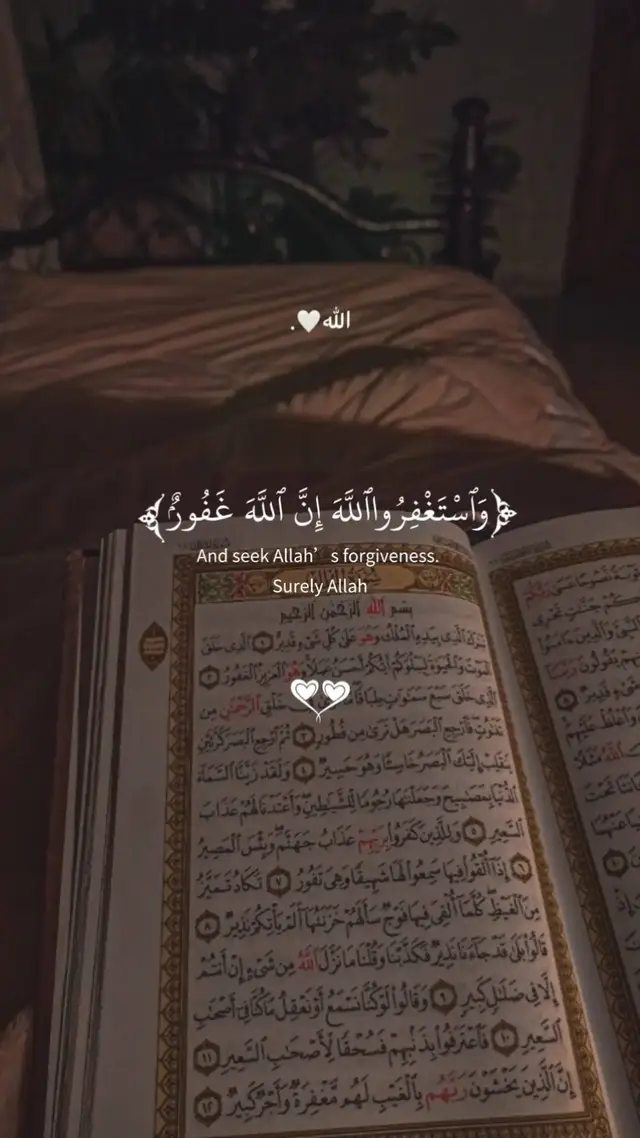 الله🤍.
﴿وَٱسْتَغْفِرُوا۟ٱللَّهَ إِنَّ ٱللَّهَ غَفُورٌ﴾
And seek Allah’s forgiveness.
Surely Allah
بسم الله الرحمن الرحيم
تبرك الذي بيده الملك وهو على كل شيء قدير ١ الذي خلق
الموت والحيوة ليبلوكم أيكم أحسن عملا وهو العزيز الغفور ٢
الذي خلق سبع سموت طباقا خلق الرحمن من
تفوت فارجع البصر هل ترى من فطور ٣ ثم ارجع البصر كرتين
ينقلب إليك البصر خاسئا وهو حسير ٤ ولقد زينا السماء
الدنيا بمصبيح وجعلنها رجوما للشيطين وأعتدنا لهم عذاب
السعير ٥ وللذين كفروا بربهم عذاب جهنم وبئس المصير
٦ إذا ألقوا فيها سمعوا لها شهيقا وهي تفور ٧ تكاد تميز
من الغيظ كلما ألقي فيها فوج سألهم خزنتها ألم يأتكم نذير ٨
قالوا بلى قد جاءنا نذير فكذبنا وقلنا ما نزل الله من شيء إن أنتم
إلا في ضلل كبير ٩ وقالوا لو كنا نسمع أو نعقل ما كنا في أصحب
السعير ١٠ فاعترفوا بذنبهم فسحقا لأصحب السعير ١١
إن الذين يخشون ربهم بالغيب لهم مغفرة وأجر كبير ١٢